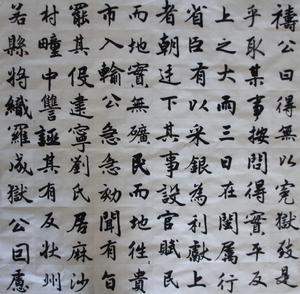 禱公曰得以寃致是
乎取某事按問得實平反
上之大雨三日在閩属行
省臣有以采銀為利獻上
者朝廷下其事設官賦民
而地實無礦民而地徃貴
市入輸公急急劾聞有旨
罷其侵建寧劉氏居麻沙
村疃中讐誣其有反壯州
若縣將織羅成獄公囙慮